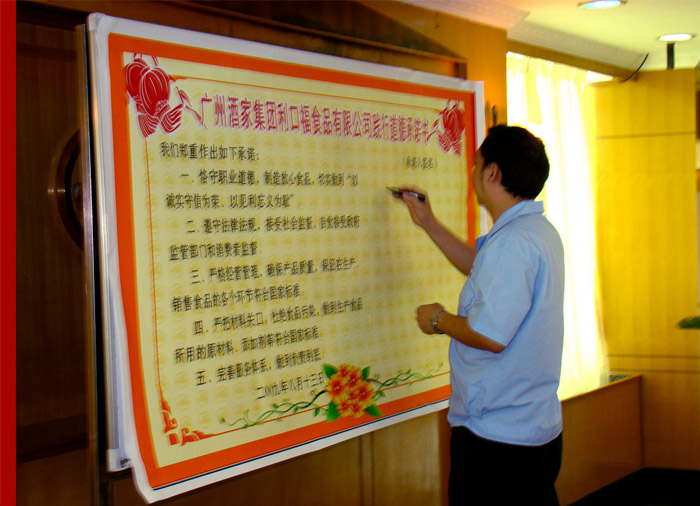 广州酒家集团利口福食品有限公司践行道德承诺书
我们郑重作出如下承诺：
（承诺人签名）
一、恪守职业道德，制造放心食品，切实做到“以
诚实守信为荣、以见利忘义为耻”
二、遵守法律法规，接受社会监督，自觉接受政府
监管部门和消费者监督
三、严格经营管理，确保产品质量，保证在生产、
销售食品的各个环节符合国家标准
四、严把材料关口，杜绝食品污染，做到生产食品
所用的原材料、添加剂等符合国家标准
五、完善服务体系，做到价费到显
二〇〇九年八月十三日